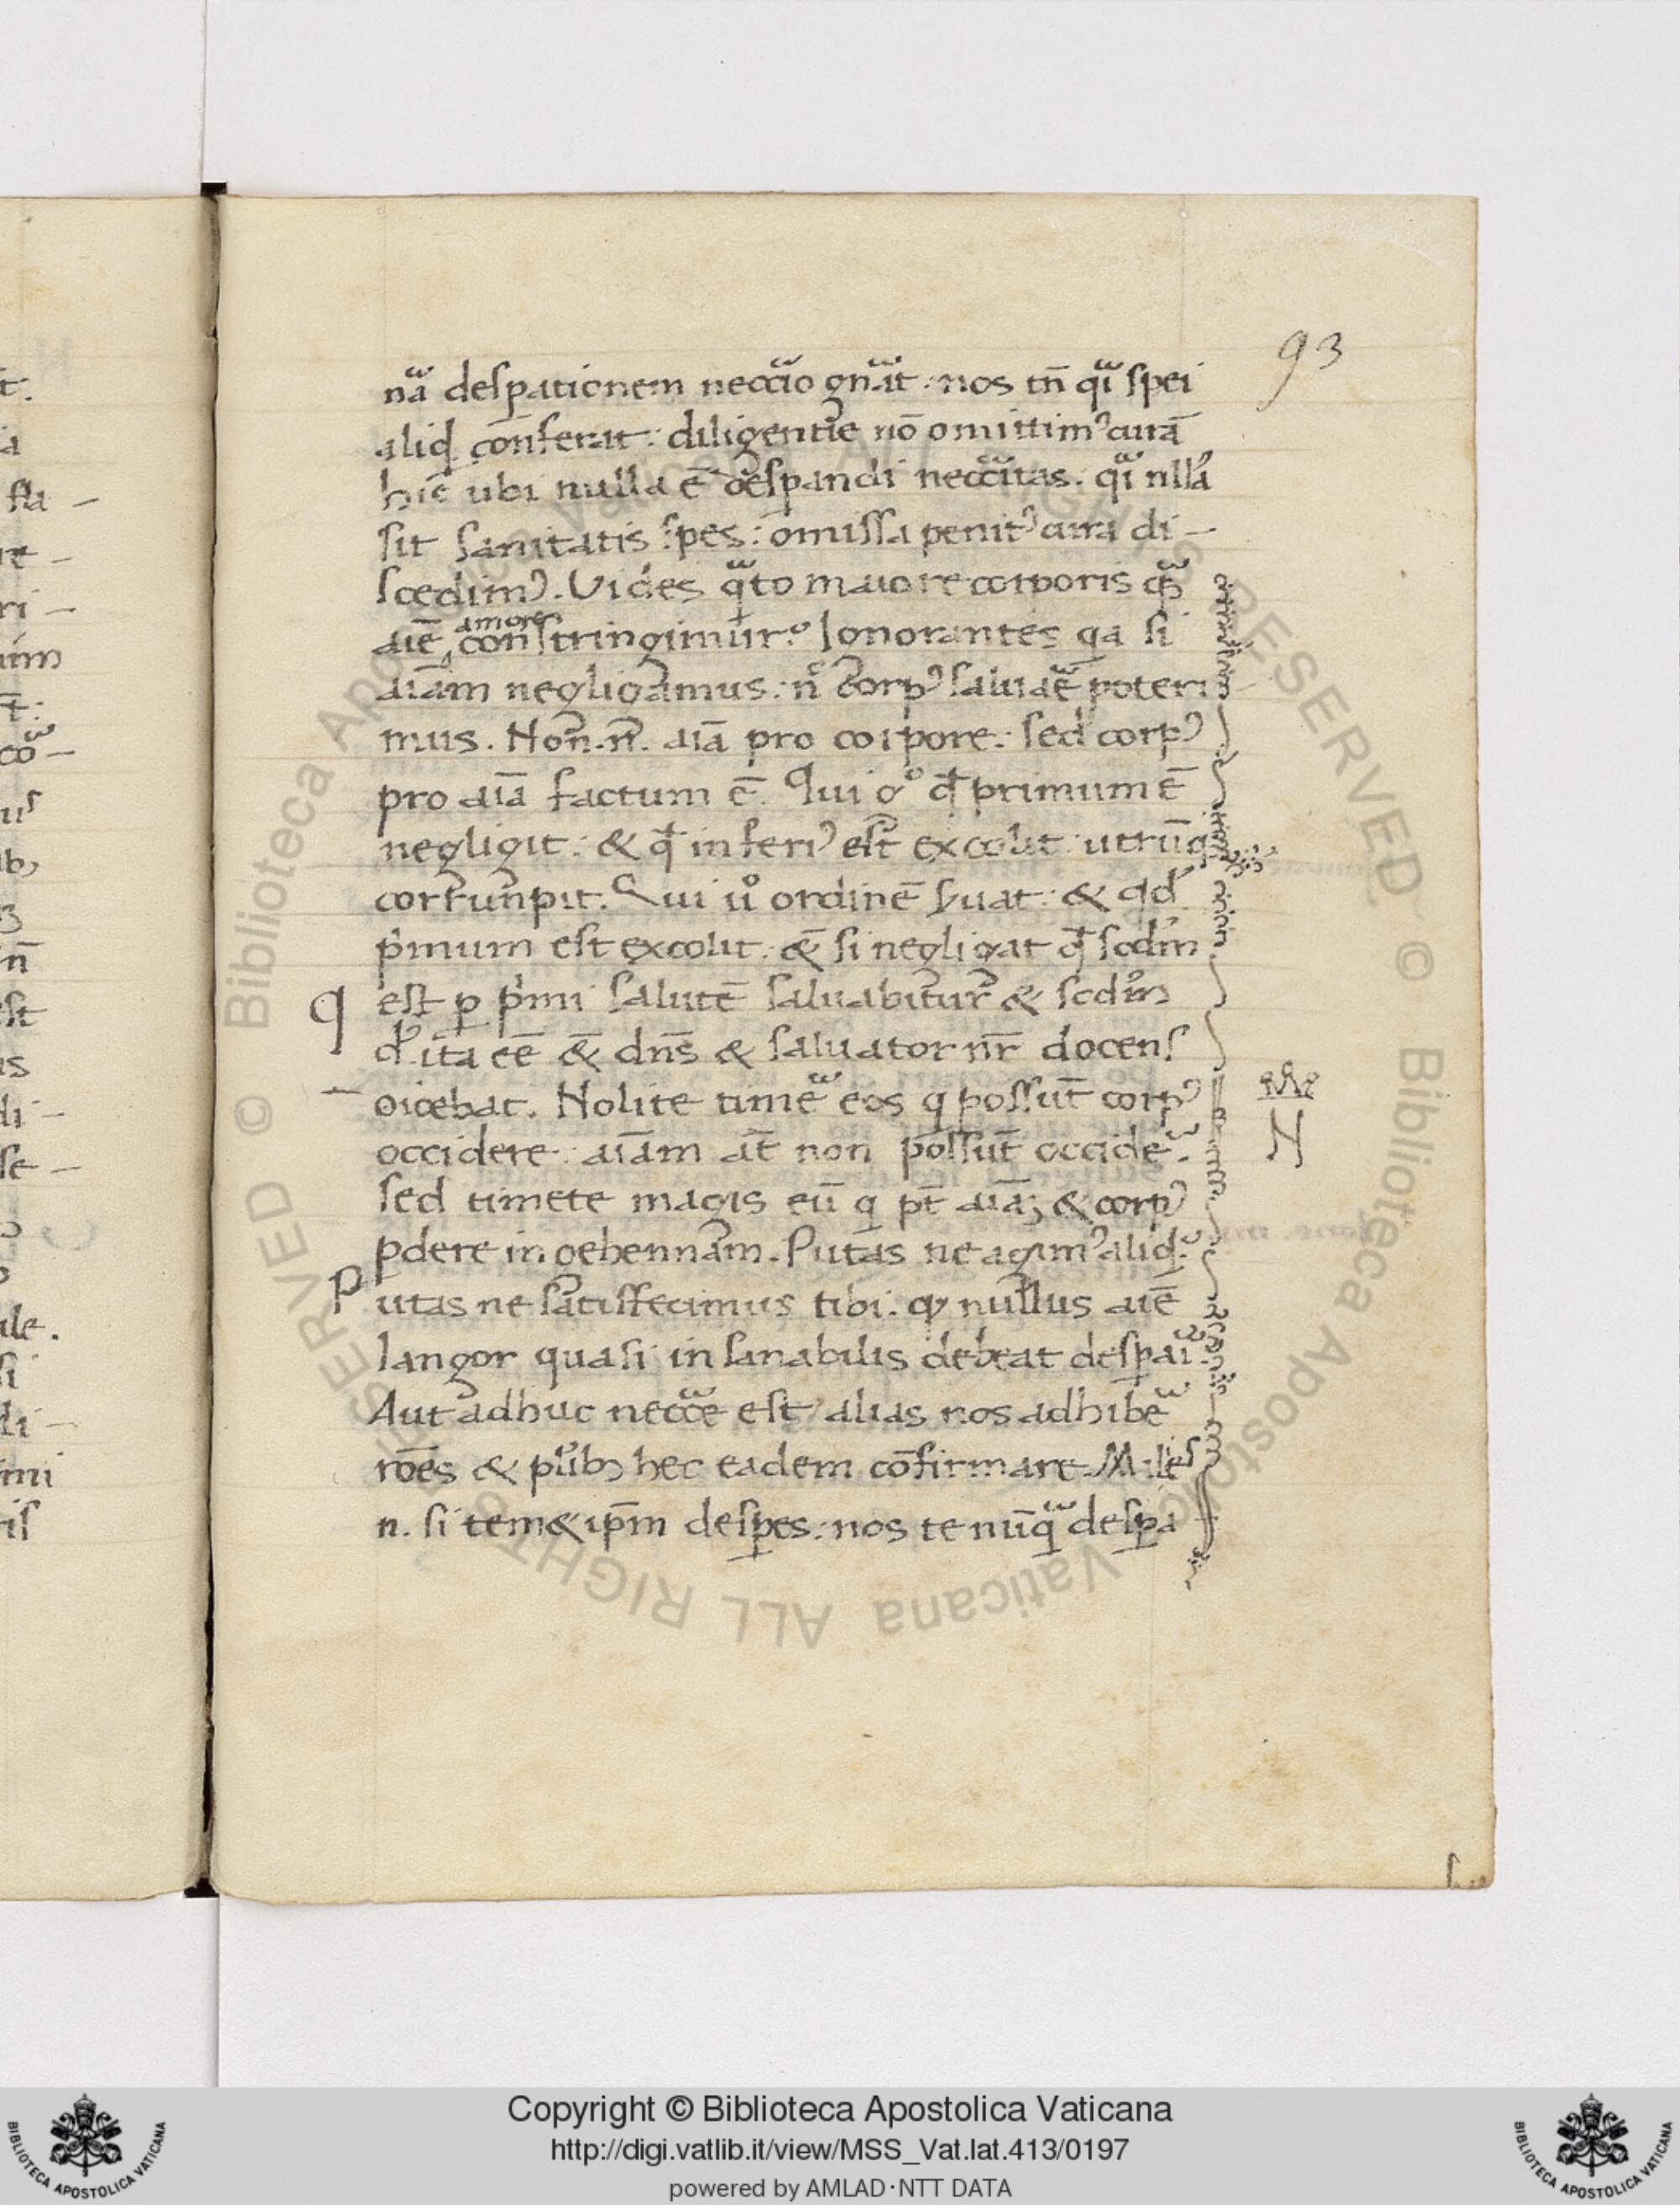 93
naᷓ desꝑationem necc̃io gñaᷓt : nos tñ q̃i spei
aliꝗ conferat : diligentie nō omittimꝰ curā
hic ubi nulla ē desꝑandi necc̃itas. q̃i nllã
sit sanitatis spes : omissa penitꝰ cura di-
scedimꝰ. Uides q̃to maiore corporis q̃
aīe amore constringimur? Ignorantes qa si
aīam negligamus : n̄ corpꝰ saluaē poteri
mus. Non .n. aīa pro corpore : sed corpꝰ
pro aīa factum ē. Qui gͦ qđ primum ē
negligit : & qđ inferiꝰ est excolit : utrūq
corrunpit. Qui ůͦ ordinē s̃uat : & qđ
pͥmum est excolit : & si negligat qđ scdm
est ꝑ pͥmi salutē saluabitur & scdm
Qđ ita eē & dn̄s & saluator nr̄ docens
dicebat. Nolite timē eos q possūt corpꝰ
occidere : aīam aūt non possūt occidē.
sed timete magis eū q pt̄ aīaꝫ & corpꝰ
ꝑdere in gehennam. Putas ne agimꝰ aliꝗ?
Putas ne satisfecimus tibi. qꝫ nullus aīe
langor quasi insanabilis debeat desꝑai.
Aut adhuc necc̃e est alias nos adhibē
rōes & plͥibꝫ hec eadem cōfirmare. Miles
n. si temet ip̄m desꝑes : nos te nūq̃ desꝑa
N
Copyright © Biblioteca Apostolica Vaticana
http://digi.vatlib.it/view/MSS_Vat.lat.413/0197
powered by AMLAD·NTT DATA
BIBLIOTECA APOSTOLICA VATICANA
BIBLIOTECA APOSTOLICA VATICANA